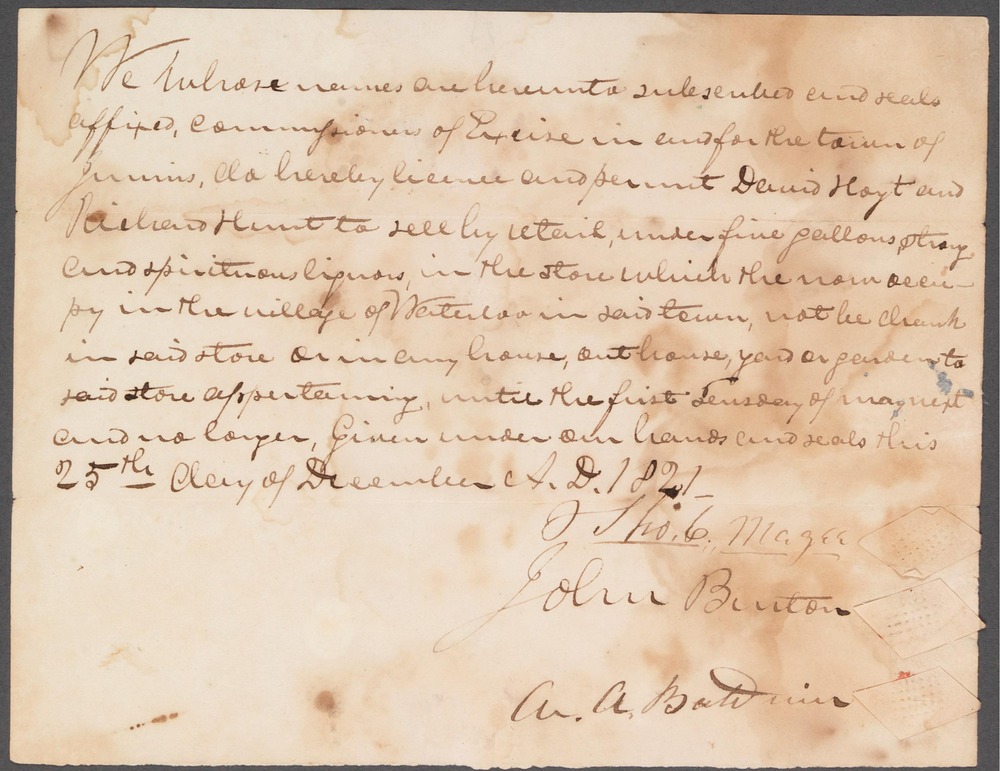 We whose names are hereunto subscribed and seals
affixed, commissioners of Excise in and for the town of
Junius, do hereby licence and permit David Hoyt and
Richard Hunt to sell by retail, under five gallons, strong
and spirituous liquors, in the store which the now occu-
py in the village of Waterloo in said town, not be drank
in said store or in any house, out house, yard or garden to
said store appertaining, until the first Tuesday of may next
and no longer, Given under our hands and seals this
25th day of December A. D. 1821
Tho. C. Magee
John Burton
A. Baldwin